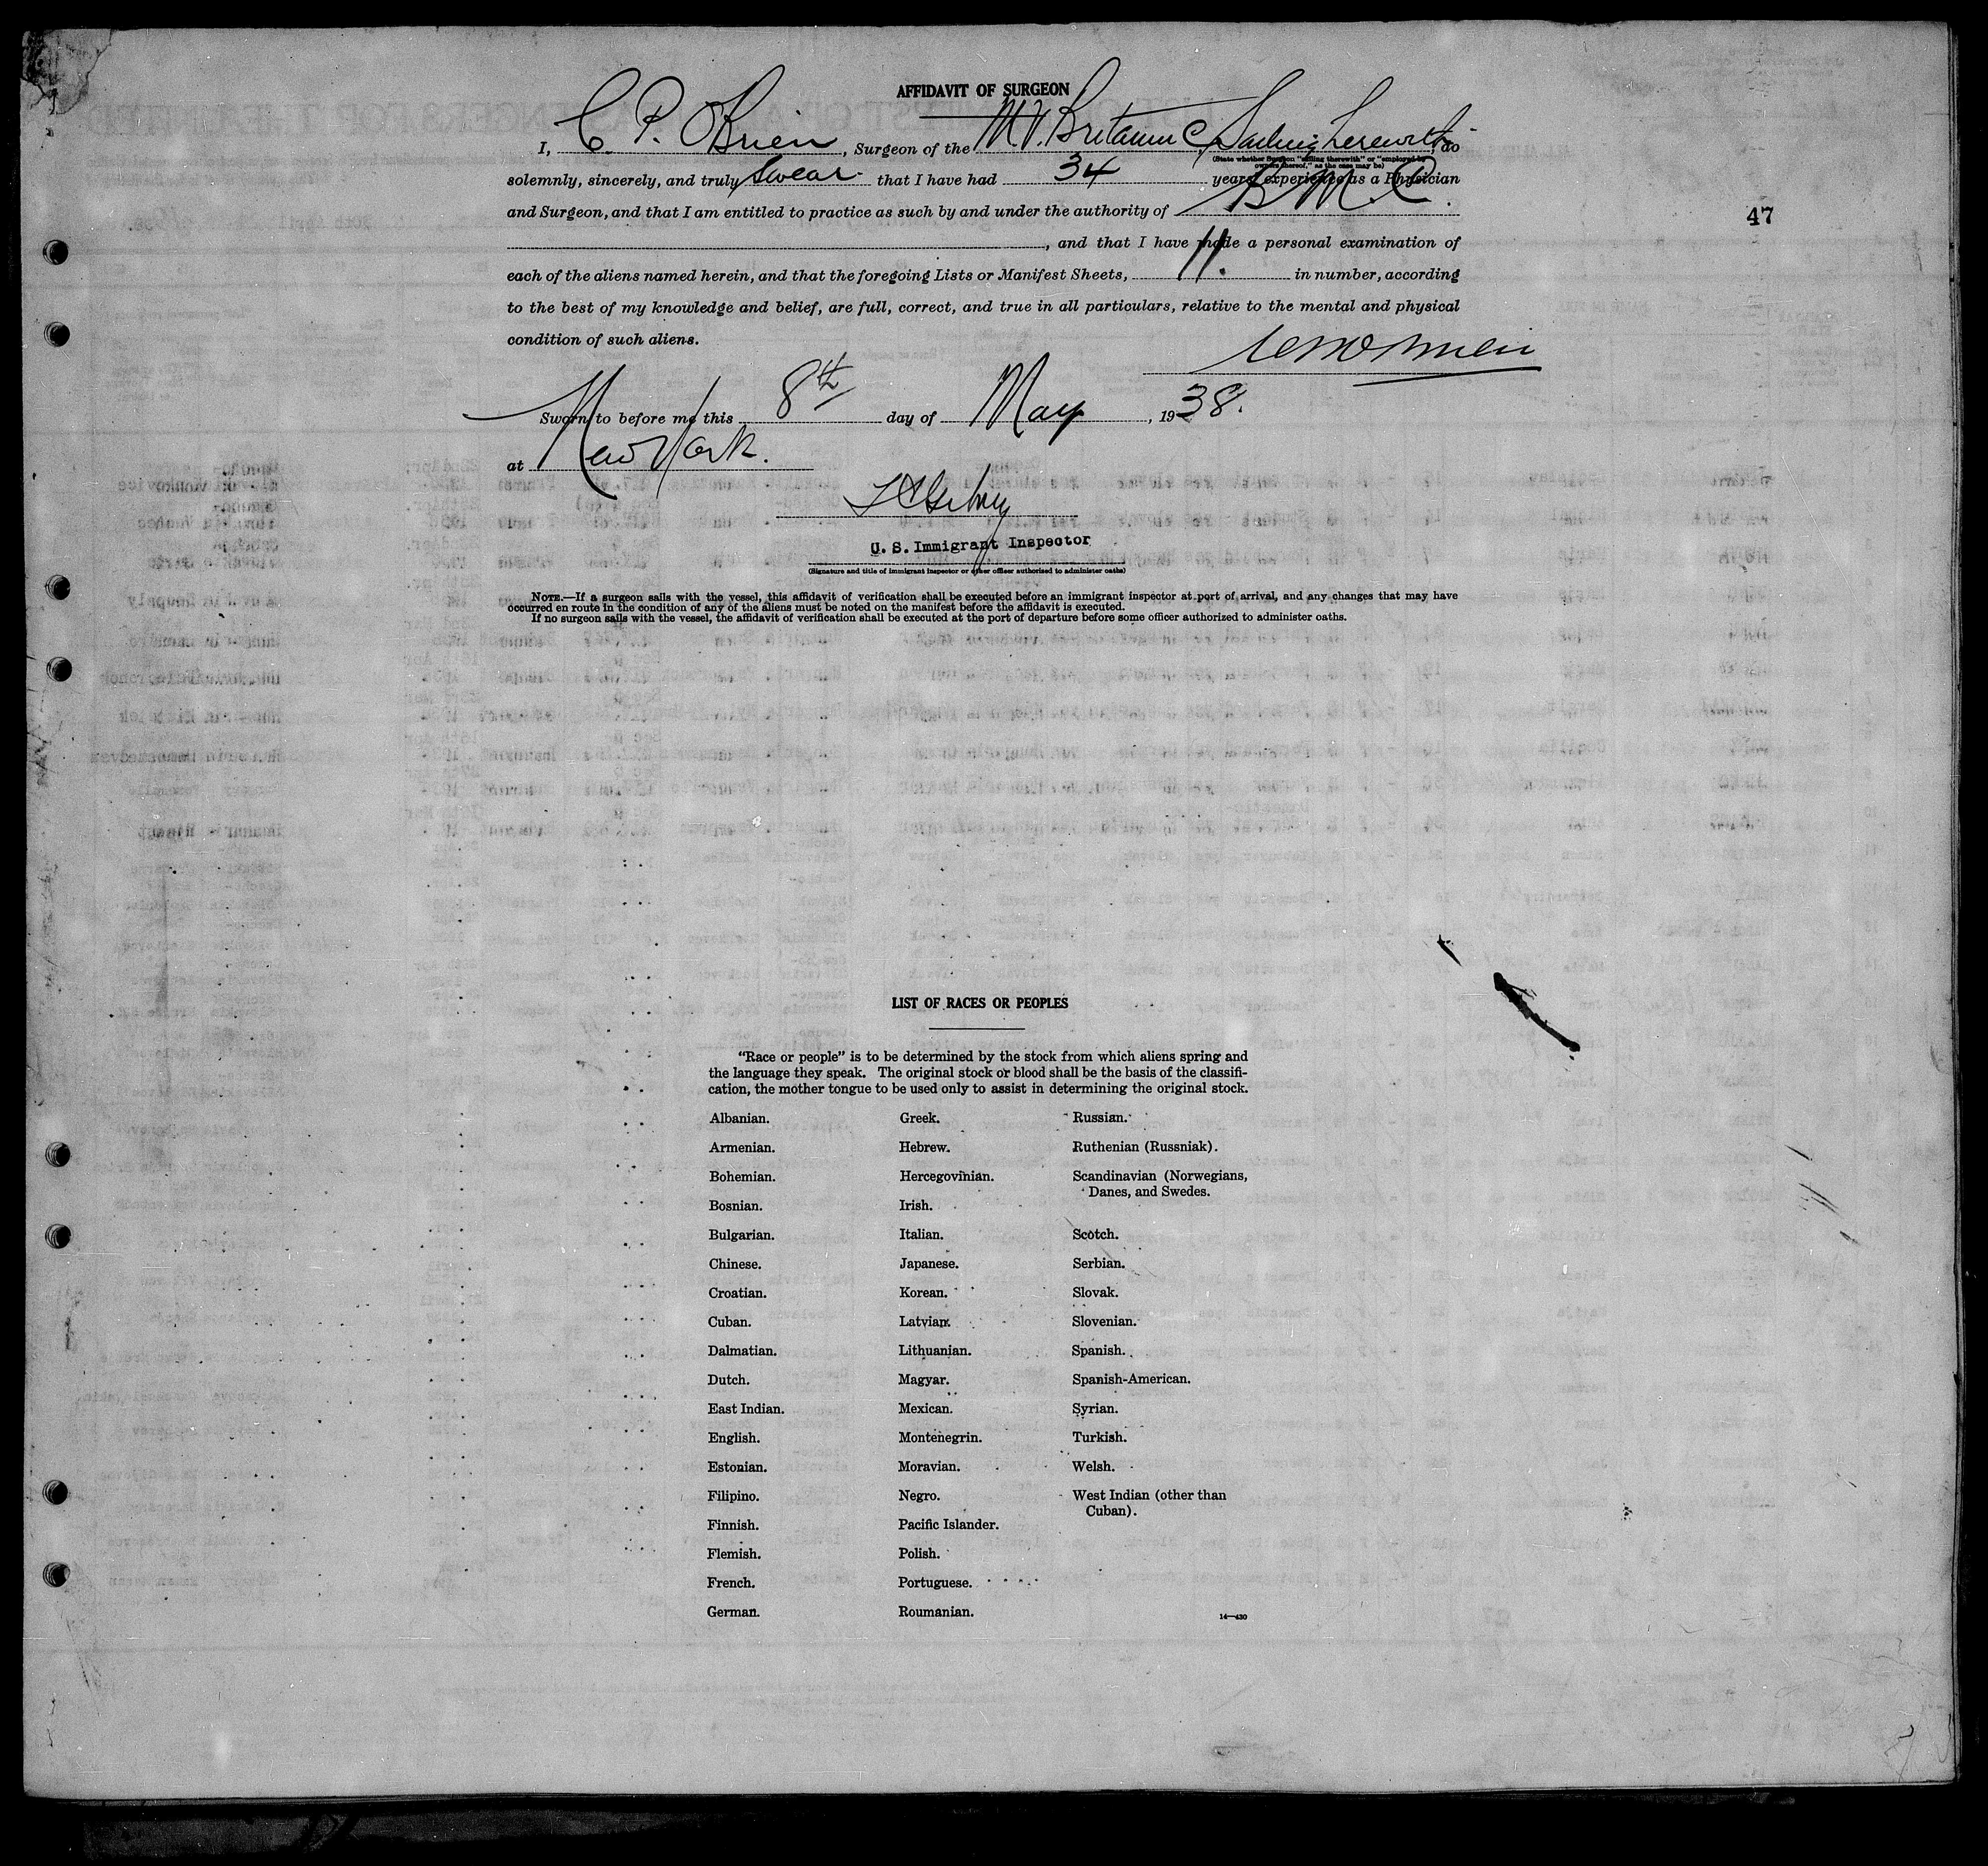 AFFIDAVIT OF SURGEON
I, C. P. O'Brien, Surgeon of the M.V. Britannic, Sailing therewith, do
(State whether Surgeon "sailing therewith" or "employed by owners thereof," as the case may be)
solemnly, sincerely, and truly swear that I have had 34 years' experience as a Physician
and Surgeon, and that I am entitled to practice as such by and under the authority of B. M. C.
, and that I have made a personal examination of
each of the aliens named herein, and that the foregoing Lists or Manifest Sheets, 11. in number, according
to the best of my knowledge and belief, are full, correct, and true in all particulars, relative to the mental and physical
condition of such aliens.
47
Sworn to before me this 8th day of May, 1938.
at New York.
U. S. Immigrant Inspector
(Signature and title of immigrant inspector or other officer authorized to administer oaths)
NOTE.—If a surgeon sails with the vessel, this affidavit of verification shall be executed before an immigrant inspector at port of arrival, and any changes that may have
occurred en route in the condition of any of the aliens must be noted on the manifest before the affidavit is executed.
If no surgeon sails with the vessel, the affidavit of verification shall be executed at the port of departure before some officer authorized to administer oaths.
LIST OF RACES OR PEOPLES
"Race or people" is to be determined by the stock from which aliens spring and
the language they speak. The original stock or blood shall be the basis of the classifi-
cation, the mother tongue to be used only to assist in determining the original stock.
Albanian.
Armenian.
Bohemian.
Bosnian.
Bulgarian.
Chinese.
Croatian.
Cuban.
Dalmatian.
Dutch.
East Indian.
English.
Estonian.
Filipino.
Finnish.
Flemish.
French.
German.
Greek.
Hebrew.
Hercegovinian.
Irish.
Italian.
Japanese.
Korean.
Latvian.
Lithuanian.
Magyar.
Mexican.
Montenegrin.
Moravian.
Negro.
Pacific Islander.
Polish.
Portuguese.
Roumanian.
Russian.
Ruthenian (Russniak).
Scandinavian (Norwegians,
Danes, and Swedes.
Scotch.
Serbian.
Slovak.
Slovenian.
Spanish.
Spanish-American.
Syrian.
Turkish.
Welsh.
West Indian (other than
Cuban).
14—430